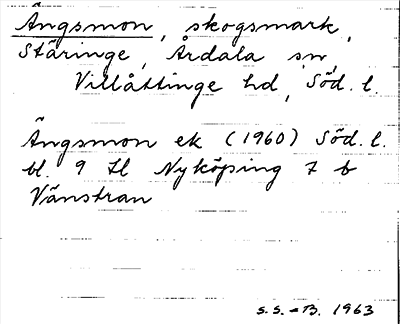 Ängsmon, skogsmark,
Stäringe, Årdala sn,
Villåttinge hd, Söd. l.
Ängsmon ek (1960) Söd. l.
bl. 9 Il Nyköping 7 b
Vänstran
S.S.-B. 1963